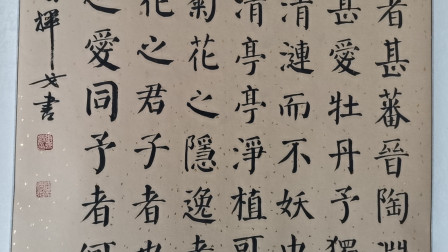 者甚蕃晉陶淵
甚愛牡丹予獨
清漣而不妖中
清亭亭淨植可
菊花之隱逸者
花之君子者也
之愛同予者何
輝書